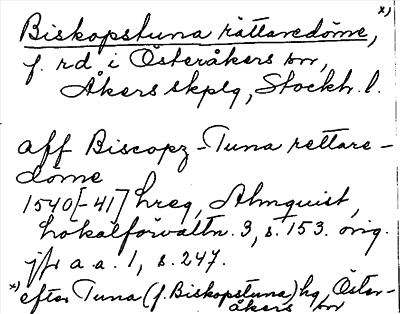 x)
Biskopstuna rättaredöme,
f. rd i Österåkers sn,
Åkers skplg, Stockh. l.
aff Biscopz-Tuna rettare-
döme
1540[-41] hreg, Almquist,
Lokalförvaltn. 3, s. 153. orig.
jfr a.a. 1, s. 247.
x) efter Tuna (f. Biskopstuna) hg, Öster-
åkers sn